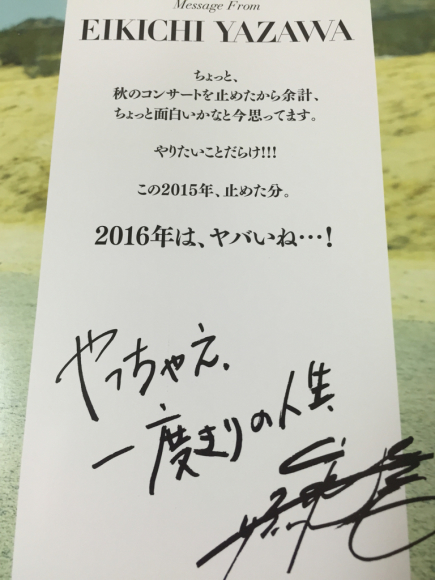 Message From
EIKICHI YAZAWA
ちょっと、
秋のコンサートを止めたから余計、
ちょっと面白いかなと今思ってます。
やりたいことだらけ!!!
この2015年、止めた分。
2016年は、ヤバいね…!
やっちゃえ、
一度きりの人生、